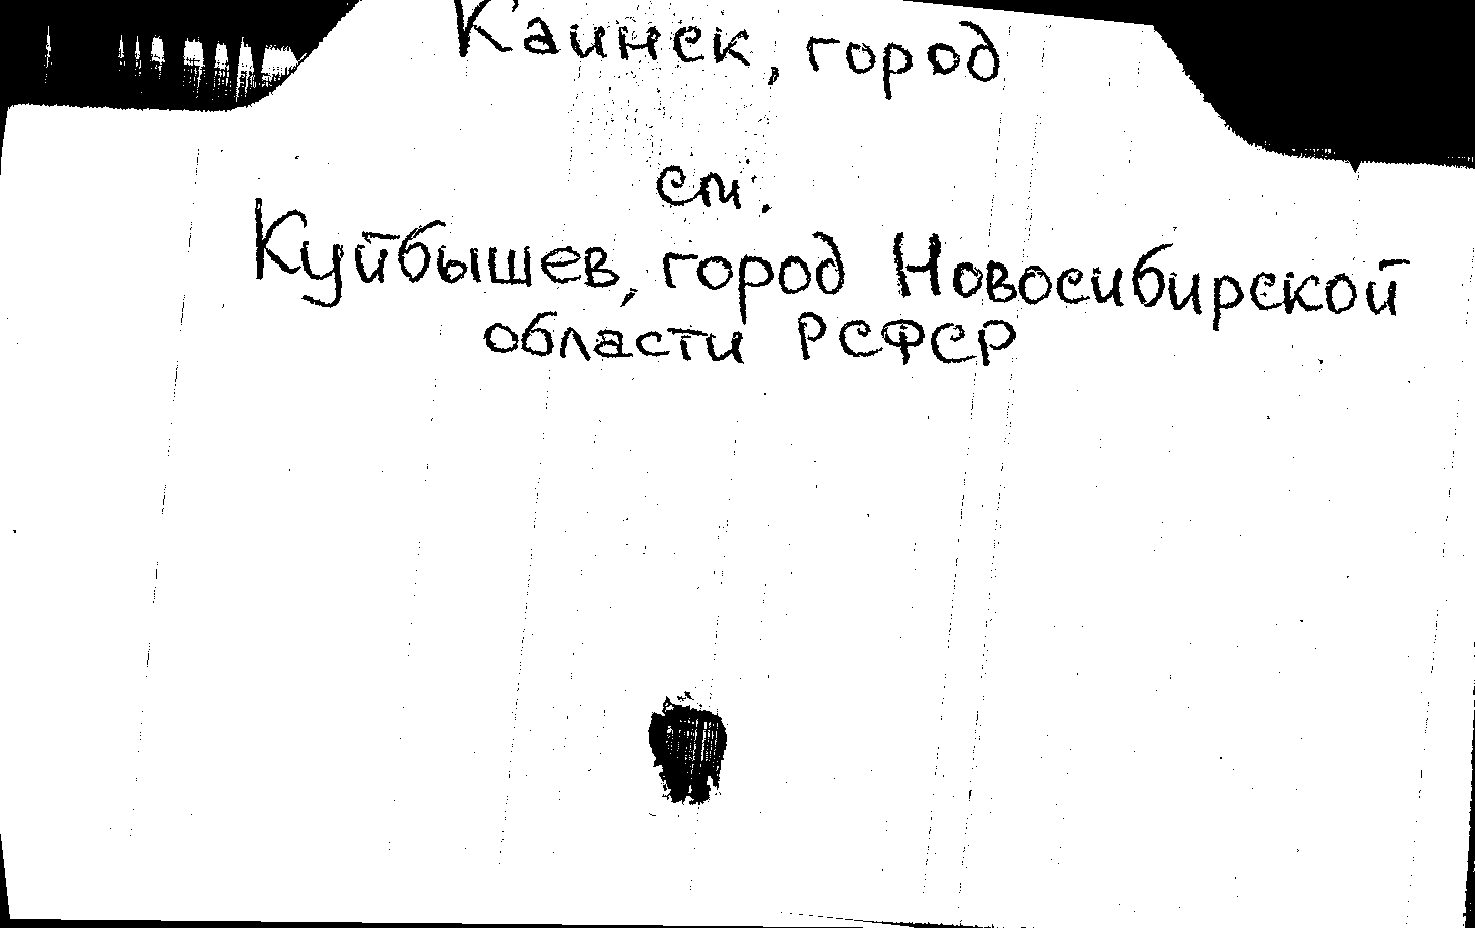 Каинск, город
см.
Куйбышев, город Новосибирской
области РСФСР